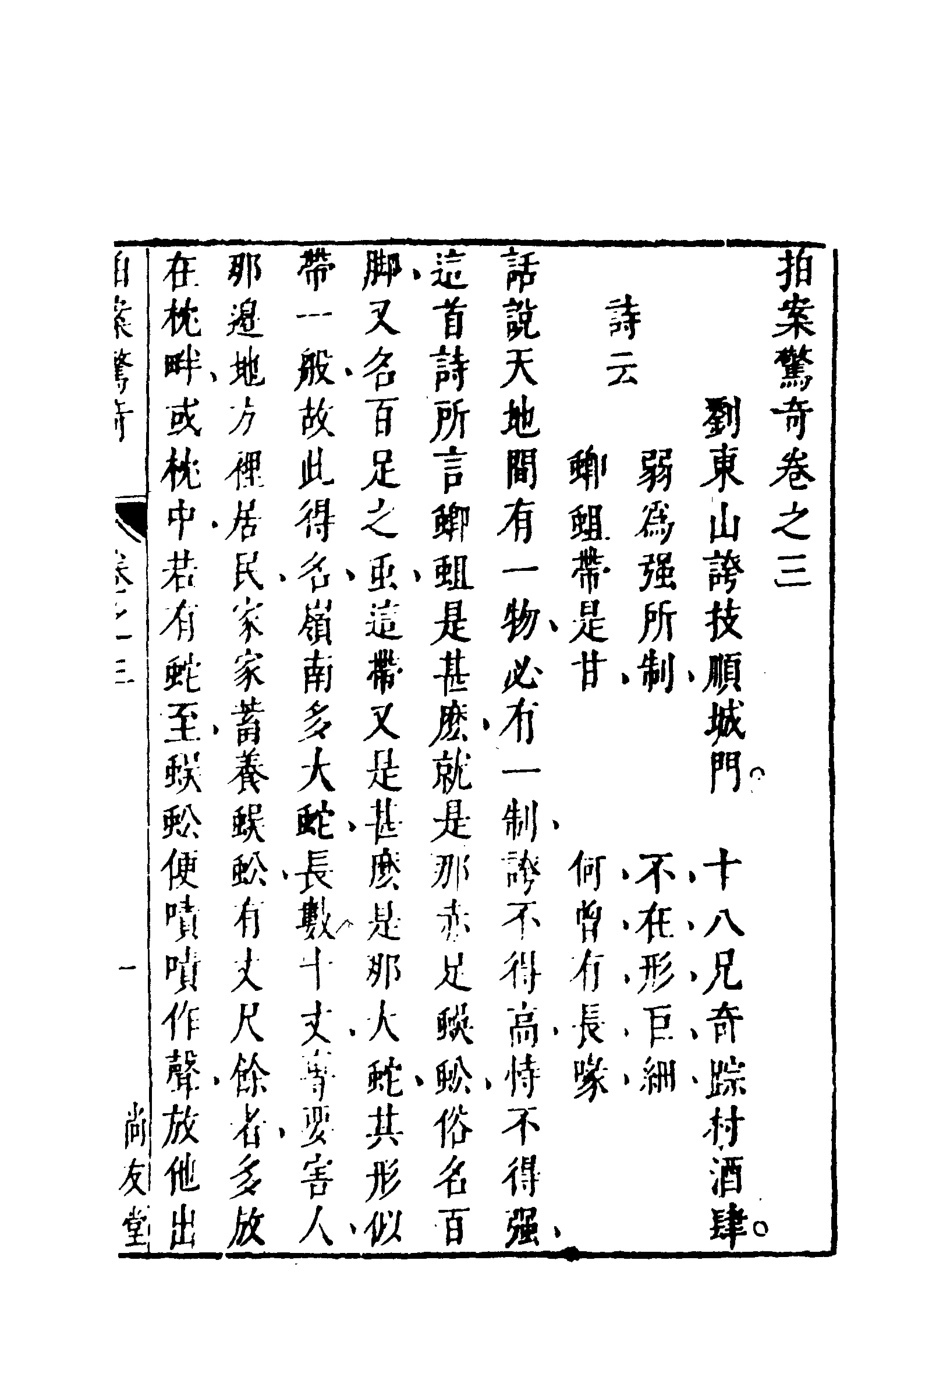 拍案驚奇卷之三
劉東山誇技順城門。　十八兄奇踪村酒肆。
詩云
弱爲强所制、　不在形巨細、
蝍蛆帶是甘、　何曾有長喙、
話說天地間有一物、必有一制、誇不得高、恃不得强、
這首詩所言蝍蛆是甚麽、就是那赤足蜈蚣、俗名百
脚、又名百足之䖝、這帶又是甚麽是那大蛇、其形似
帶一般、故此得名、嶺南多大蛇、長數十丈、專要害人、
那邊地方裡居民、家家蓄養蜈蚣、有丈尺餘者、多放
在枕畔、或枕中、若有蛇至、蜈蚣便嘖嘖作聲、放他出
拍案驚奇　卷之三　一　尚友堂